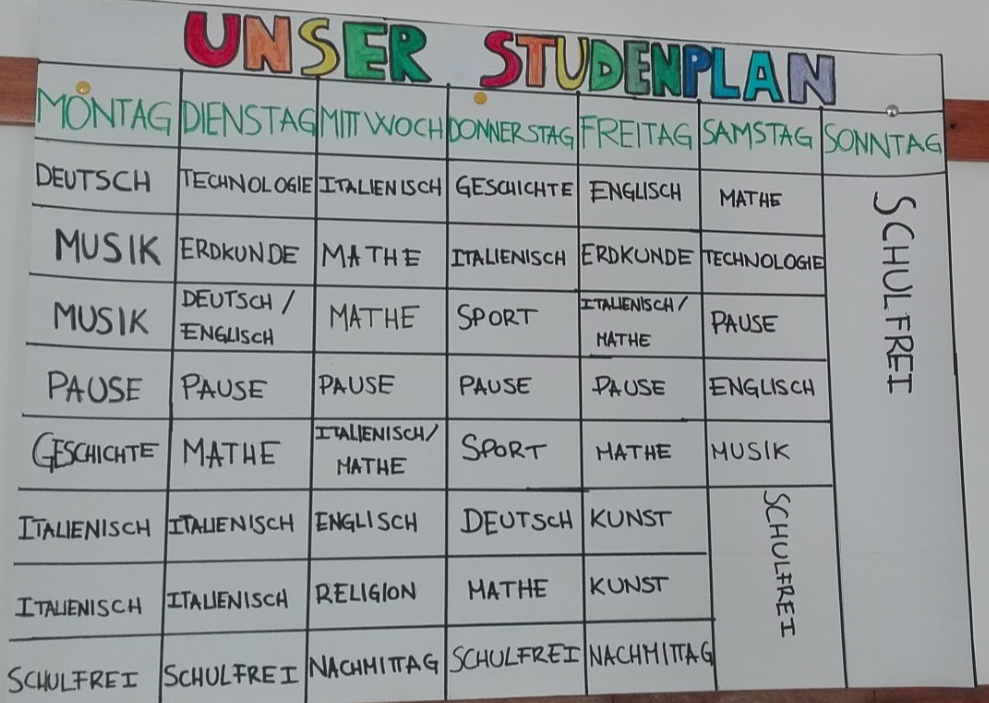 UNSER STUDENPLAN
MONTAG DIENSTAG MITTWOCH DONNERSTAG FREITAG SAMSTAG SONNTAG
DEUTSCH TECHNOLOGIE ITALIENISCH GESCHICHTE ENGLISCH MATHE SCHULFREI
MUSIK ERDKUNDE MATHE ITALIENISCH ERDKUNDE TECHNOLOGIE
MUSIK DEUTSCH / ENGLISCH MATHE SPORT ITALIENISCH / MATHE PAUSE
PAUSE PAUSE PAUSE PAUSE PAUSE ENGLISCH
GESCHICHTE MATHE ITALIENISCH/ MATHE SPORT MATHE MUSIK
ITALIENISCH ITALIENISCH ENGLISCH DEUTSCH KUNST SCHULFREI
ITALIENISCH ITALIENISCH RELIGION MATHE KUNST
SCHULFREI SCHULFREI NACHMITTAG SCHULFREI NACHMITTAG